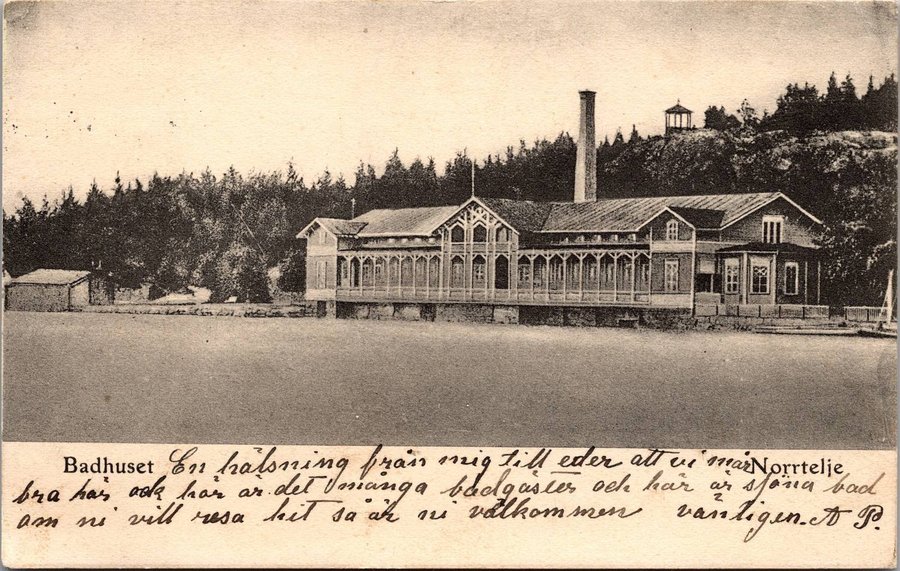 Badhuset En hälsning från mig till eder att vi mår Norrtelje
bra här ock här är det många badgäster och här är sköna bad
om ni vill resa hit så är ni välkommen vänligen A P.